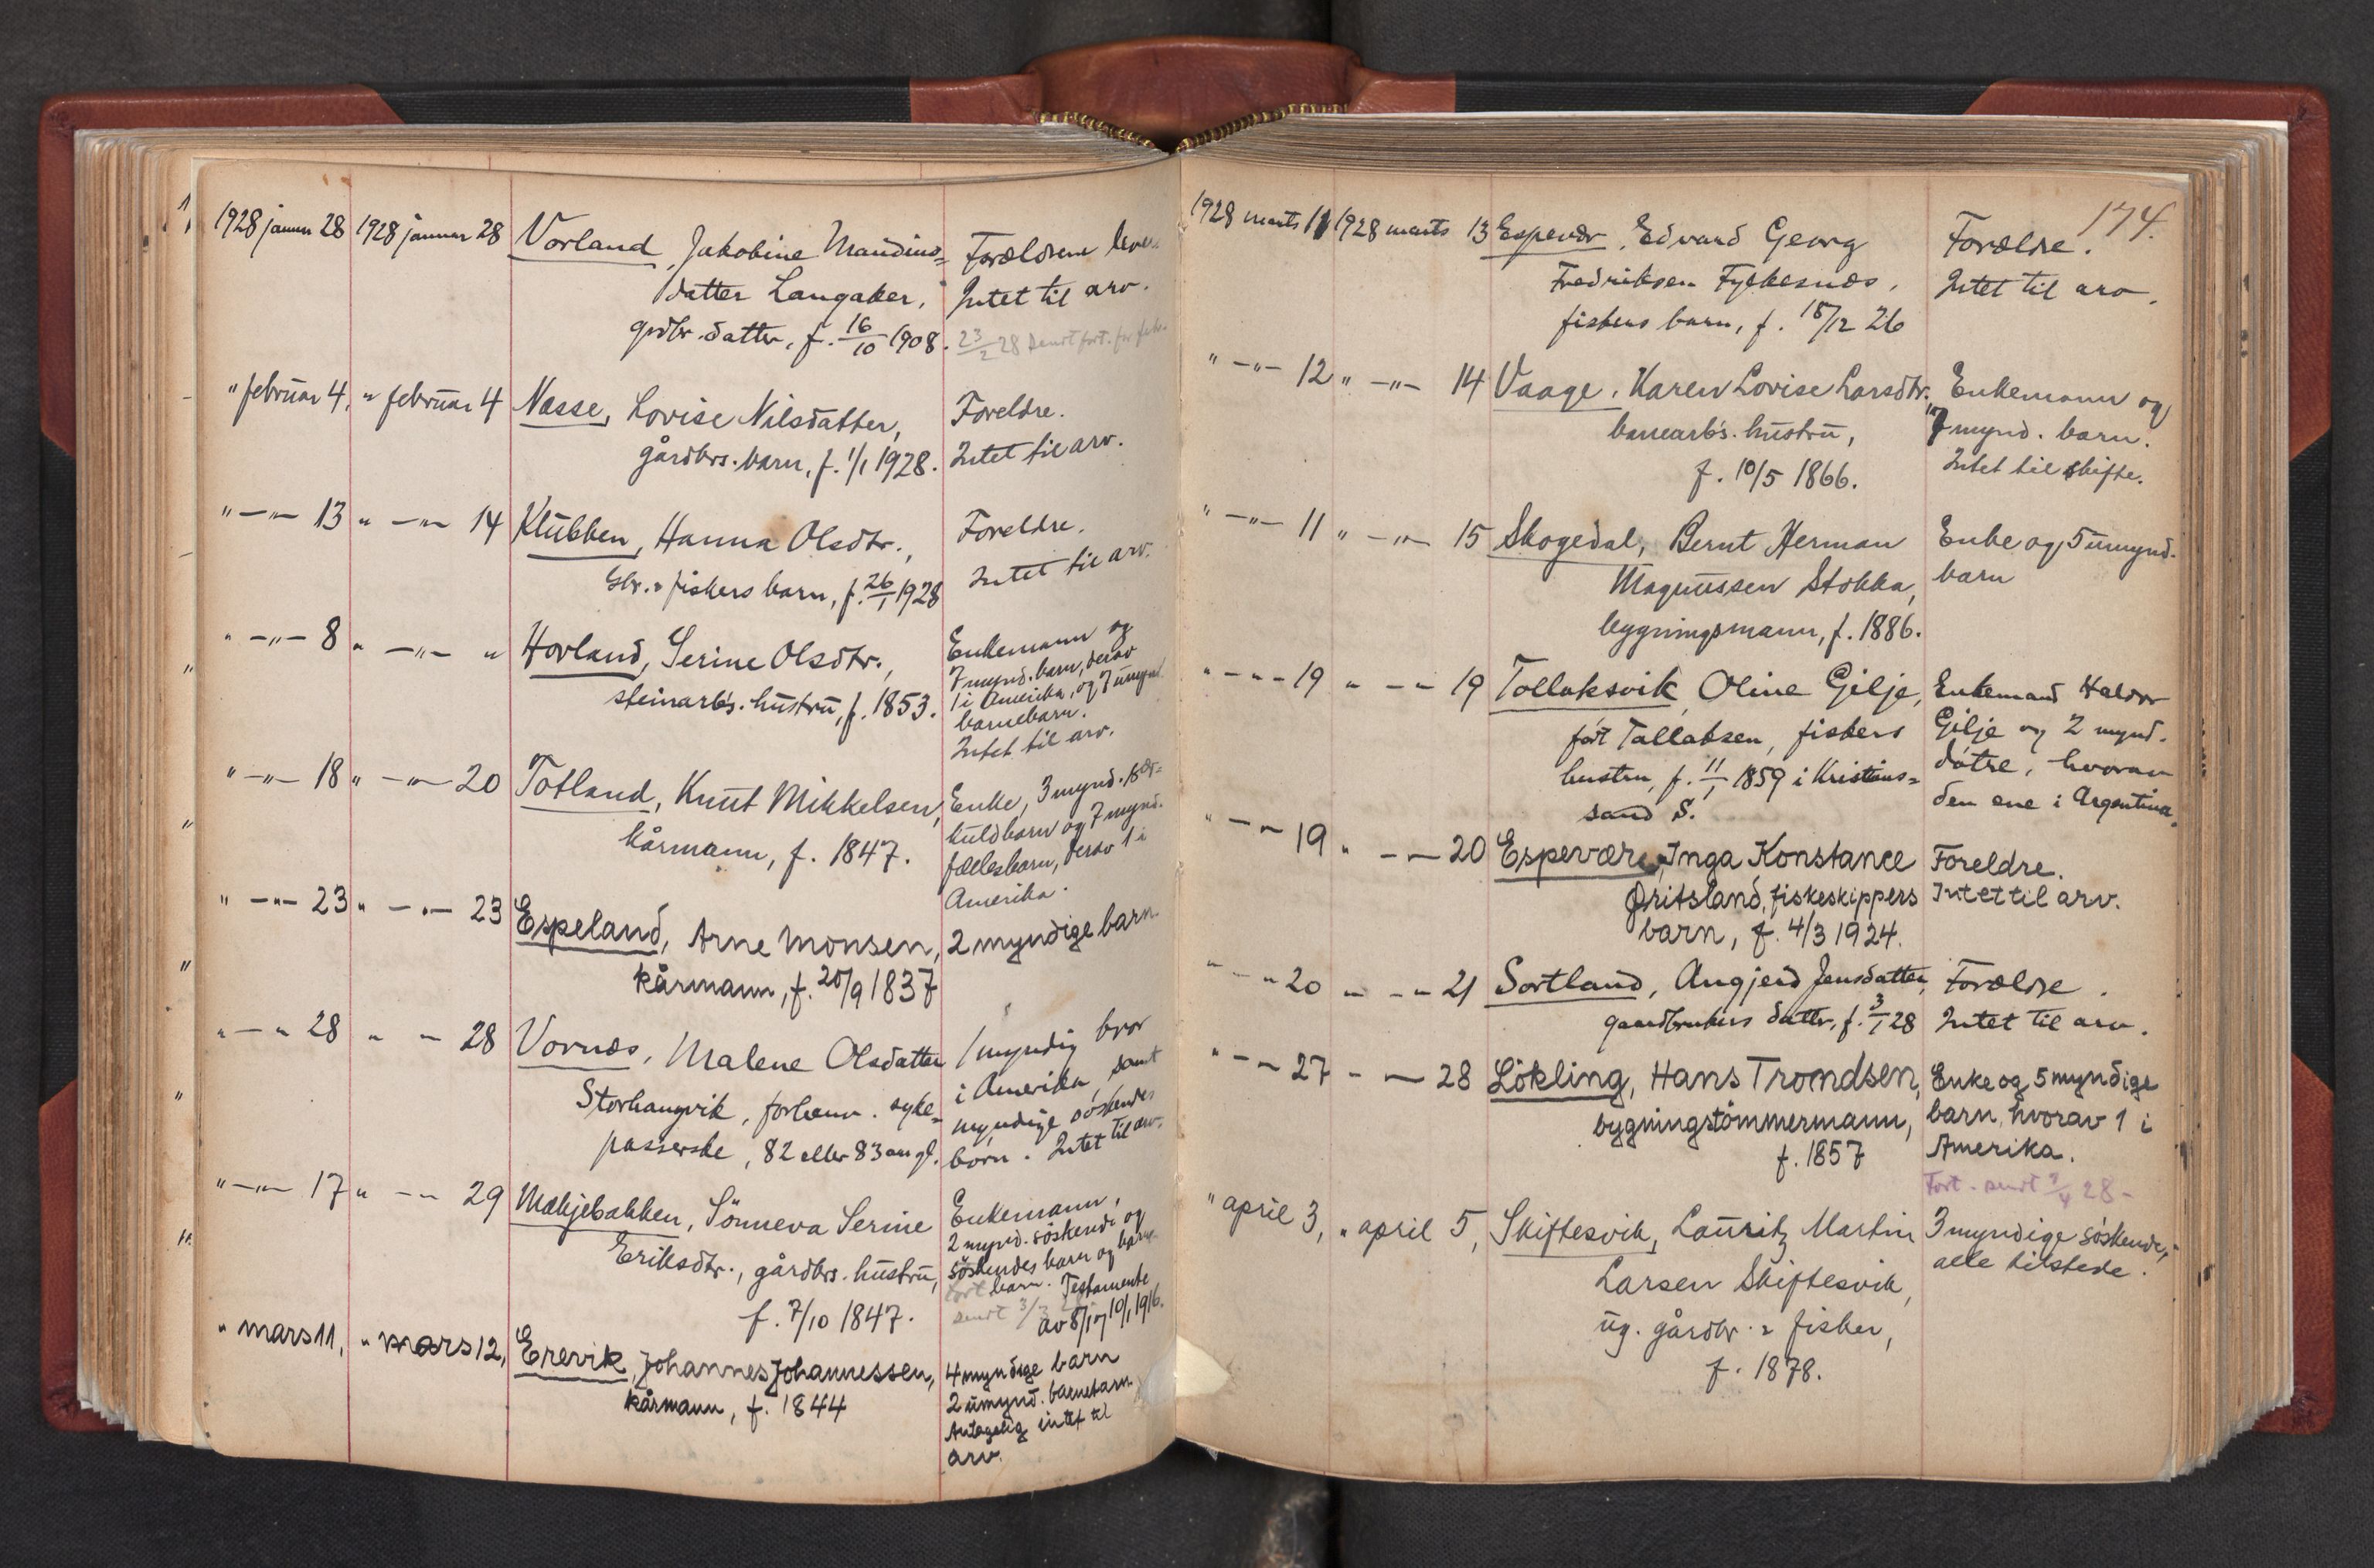 1928 januar 28 1928 januar 28 Vorland, Jakobine Maudius= Forældrene lever.
datter Langaker, Intet til arv.
grdbr. datter, f. 16/10 1908. 23/2 28 sendt fort.
" februar 4, " februar 4 Næsse, Lovise Nilsdatter, Foreldre.
gårdbrs. barn, f. 1/1 1928. Intet til arv.
" —"— 13 " —"— 14 Klubben, Hanna Olsdtr., Foreldre.
Gbr. & fiskers barn, f. 26/1 1928 Intet til arv.
" —"— 8 " —"— " Hovland, Serine Olsdtr., Enkemann og
7 mynd. barn, derav
steinarb's. hustru, f. 1853. 1 i Amerika, og 7 umynd.
barnebarn.
Intet til arv.
" —"— 18 " —"— 20 Totland, Knut Mikkelsen, Enke, 3 mynd. sær=
kårmann, f. 1847. kuldbarn og 7 mynd.
fællesbarn, derav 1 i
Amerika.
" —"— 23 " —"— 23 Espeland, Arne Monsen, 2 myndige barn
kårmann, f. 20/9 1837
" — " 28 " — 28 Vornæs, Malene Olsdatter 1 myndig bror
Storhaugvik, forhenv. syke= i Amerika, samt
passerske, 82 eller 83 aar gl. myndige søskendes
born. Intet til arv.
" —"— 17 " —"— 29 Mækjebakken, Sönneva Serine Enkemann,
2 mynd. söskende og
Eriksdtr., gårdbrs. hustru, söskendes barn og barne-
fort barn. Testamente
f. 7/10 1847. sendt 3/3 av 8/1 og 10/1 1916.
" mars 11, " mars 12, Erevik, Johannes Johannessen, 4 myndige barn
kårmann, f. 1844 2 umynd. barnebarn.
Antagelig intet til
arv.
174.
1928 marts 11 1928 marts 13 Espevær, Edvard Georg Forældre.
Fredriksen Fylkesnæs, Intet til arv.
fiskers barn, f. 15/12 26
" —"— 12 " —"— 14 Vaage, Karen Lovise Larsdtr. Enkemann og
banearb's. hustru, 7 mynd. barn.
f. 10/5 1866. Intet til skifte.
" —"— 11 " —"— 15 Skogedal, Bernt Herman Enke og 5 umynd.
Magnussen Stokka, barn
bygningsmann, f. 1886.
" — " — 19 " — " 19 Tollaksvik, Oline Gilje, Enkemand Haldor
født Tallaksen, fiskers Gilje og 2 mynd.
hustru, f. 11/1 1859 i Kristians= døtre, hvorav
sand S. den ene i Argentina.
" — " 19 " — " 20 Espevære, Inga Konstance Foreldre.
Øritsland, fiskeskippers Intet til arv.
barn, f. 4/3 1924.
" — " 20 " — " 21 Sortland, Angjerd Jensdatter, Forældre.
gaardbrukers datter, f. 3/1 28 Intet til arv.
" — " 27 " — 28 Lökling, Hans Trondsen, Enke og 5 myndige
bygningstömmermann, barn, hvorav 1 i
f. 1857 Amerika.
Fort. sendt 2/4 28 -
" april 3, " april 5, Skiftesvik, Lauritz Martin 3 myndige söskende,
Larsen Skiftesvik, alle tilstede.
ug. gårdbr. & fisker,
f. 1878.